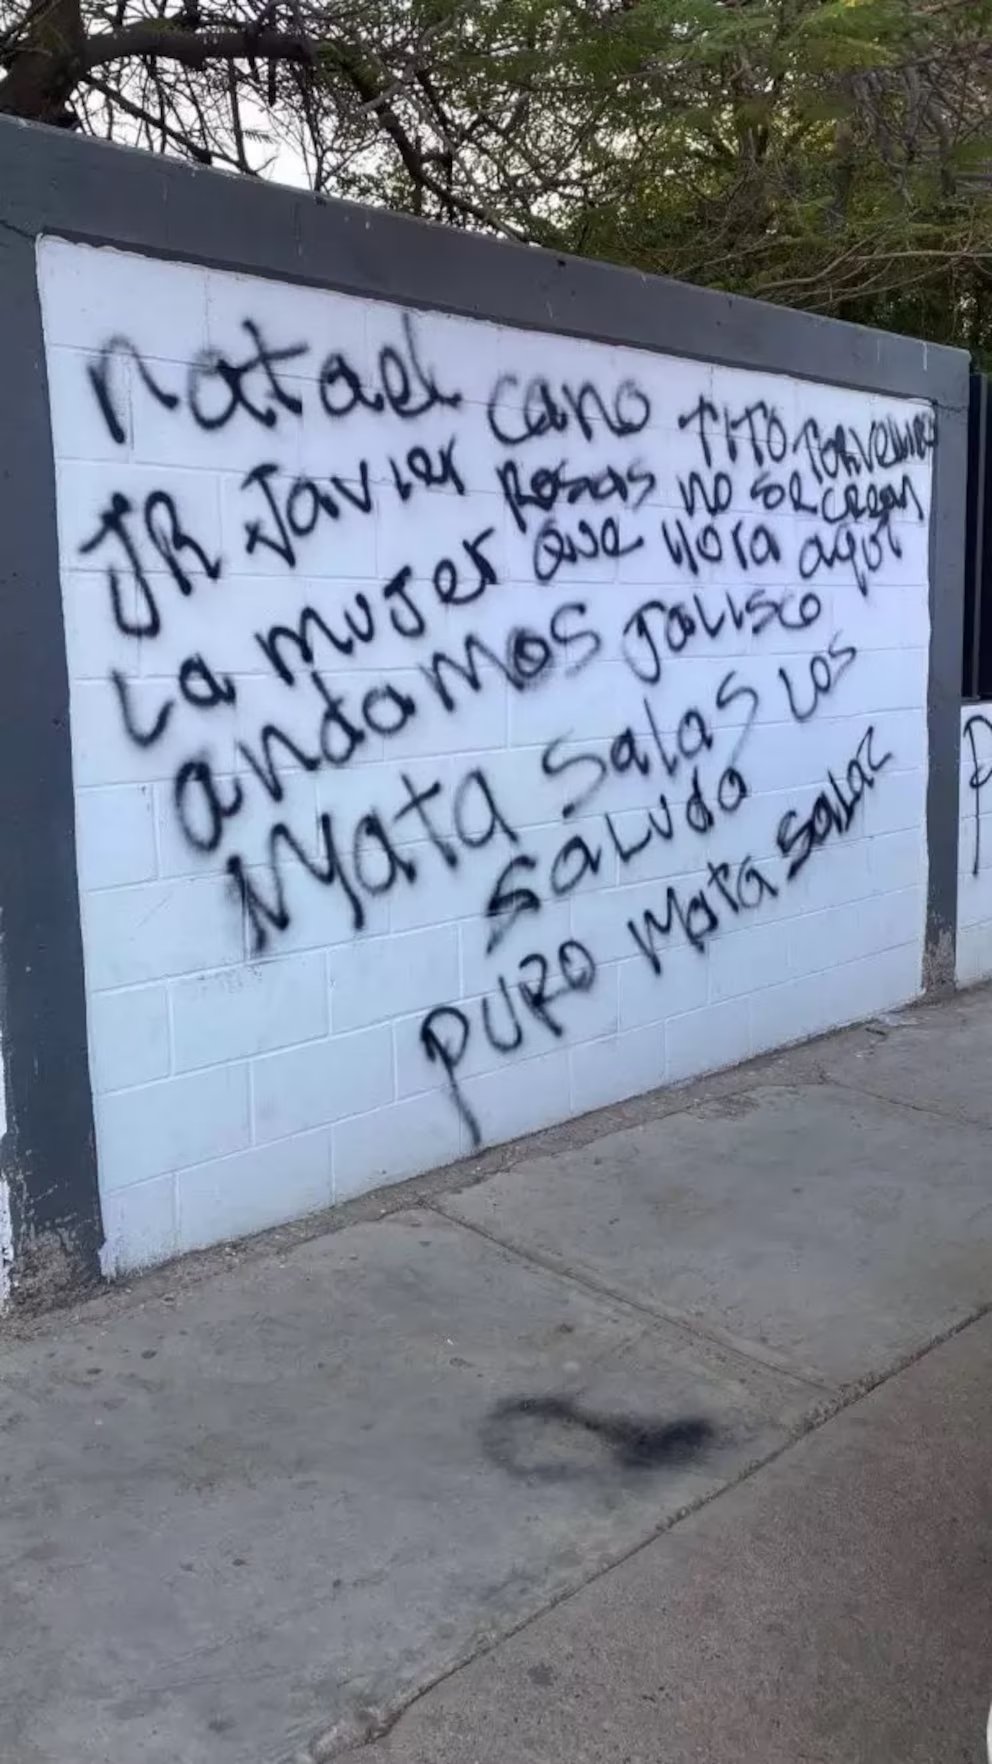 natael cano TITO TORVELLINO
JR Javier Rosas no se crean
La mujer que llora aqui
andamos Jalisco
Mata salas los
saluda
PURO Mata salac
P